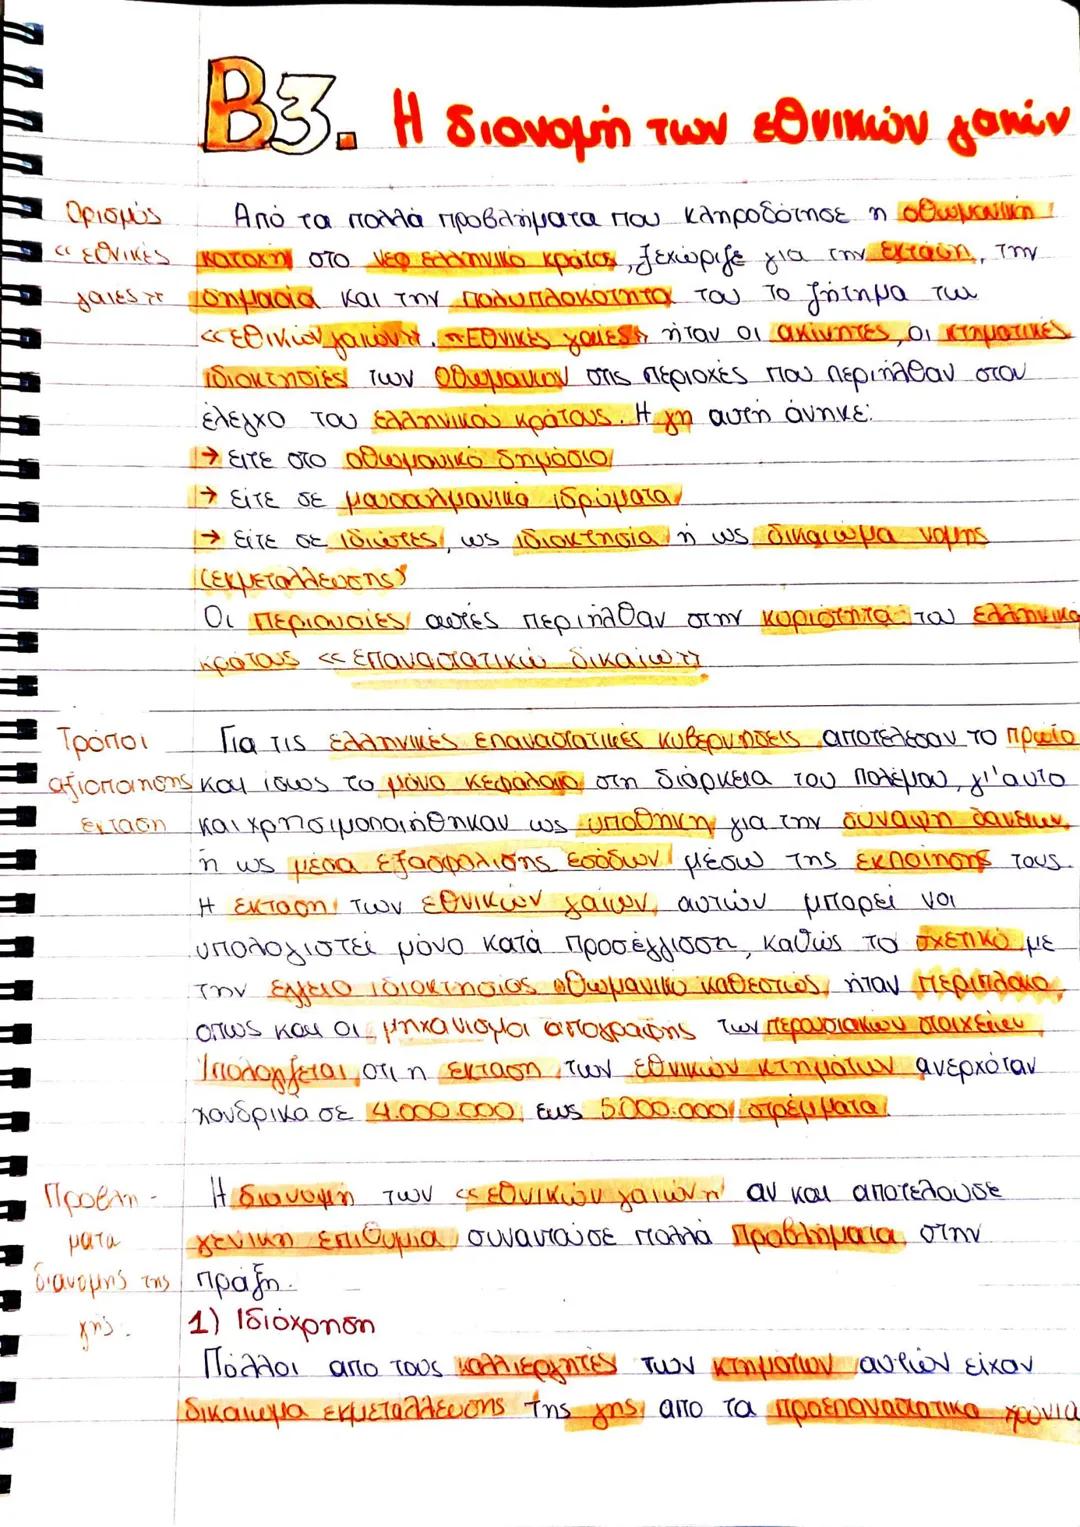 Β3. Η διανομή των εθνικών γαιών
Ορισμός
«εθνικές
γαιες»
Από τα πολλά προβλήματα που κληροδότησε η οθωμανική
κατοχή στο νεο ελληνικό κράτος, ξεχώριζε για την έκταση, την
σημασία και την πολυπλοκότητα του το ζήτημα των
«εθνικών γαιών». «Εθνικές γαιες» ήταν οι ακίνητες, οι κτηματικές
ιδιοκτησίες των Οθωμανών στις περιοχές που περιήλθαν στον
έλεγχο του ελληνικού κράτους. Η γη αυτή άνηκε:
→ ειτε στο οθωμανικό δημόσιο
→ είτε σε μουσουλμανικα ιδρύματα
→ είτε σε ιδιώτες, ως ιδιοκτησία ή ως δικαίωμα νομής
(εκμετάλλευσης)
Οι περιουσίες αυτές περιήλθαν στην κυριότητα του ελληνικού
κράτους «επαναστατικώ δικαίω»
Τρόποι
αξιοποίησης
έκταση
Για τις ελληνικές επαναστατικές κυβερνήσεις αποτέλεσαν το πρώτο
και ίσως το μόνο κεφάλαιο στη διάρκεια του πολέμου, γι'αυτο
και χρησιμοποιήθηκαν ως υποθήκη για την σύναψη δανείων,
ή ως μέσα εξασφάλισης εσόδων μέσω της εκποίησης τους.
Η έκταση των εθνικών γαιών, αυτών μπορεί να
υπολογιστεί μόνο κατά προσέγγιση, καθώς το σχετικό με
την έγγειο ιδιοκτησίας οθωμανικό καθεστώς, ήταν περίπλοκο,
οπως και οι μηχανισμοί απογραφής των περουσιακών στοιχείων
Υπολογίζεται οτι η έκταση των εθνικών κτημάτων ανερχόταν
χονδρικα σε 4.000.000 εως 5.000.000 στρέμματα.
Προβλή-
ματα
διανομής της
γης.
Η διανομή των «εθνικών γαιών» αν και αποτελουσε
γενικη επιθυμια συναντούσε πολλά προβλήματα στην
πράξη.
1) Ιδιόχρηση
Πόλλοι απο τους καλλιεργητές των κτημάτων αυτών είχαν
δικαιωμα εκμετάλλευσης της γης απο τα προεπαναστατικα χρόνια